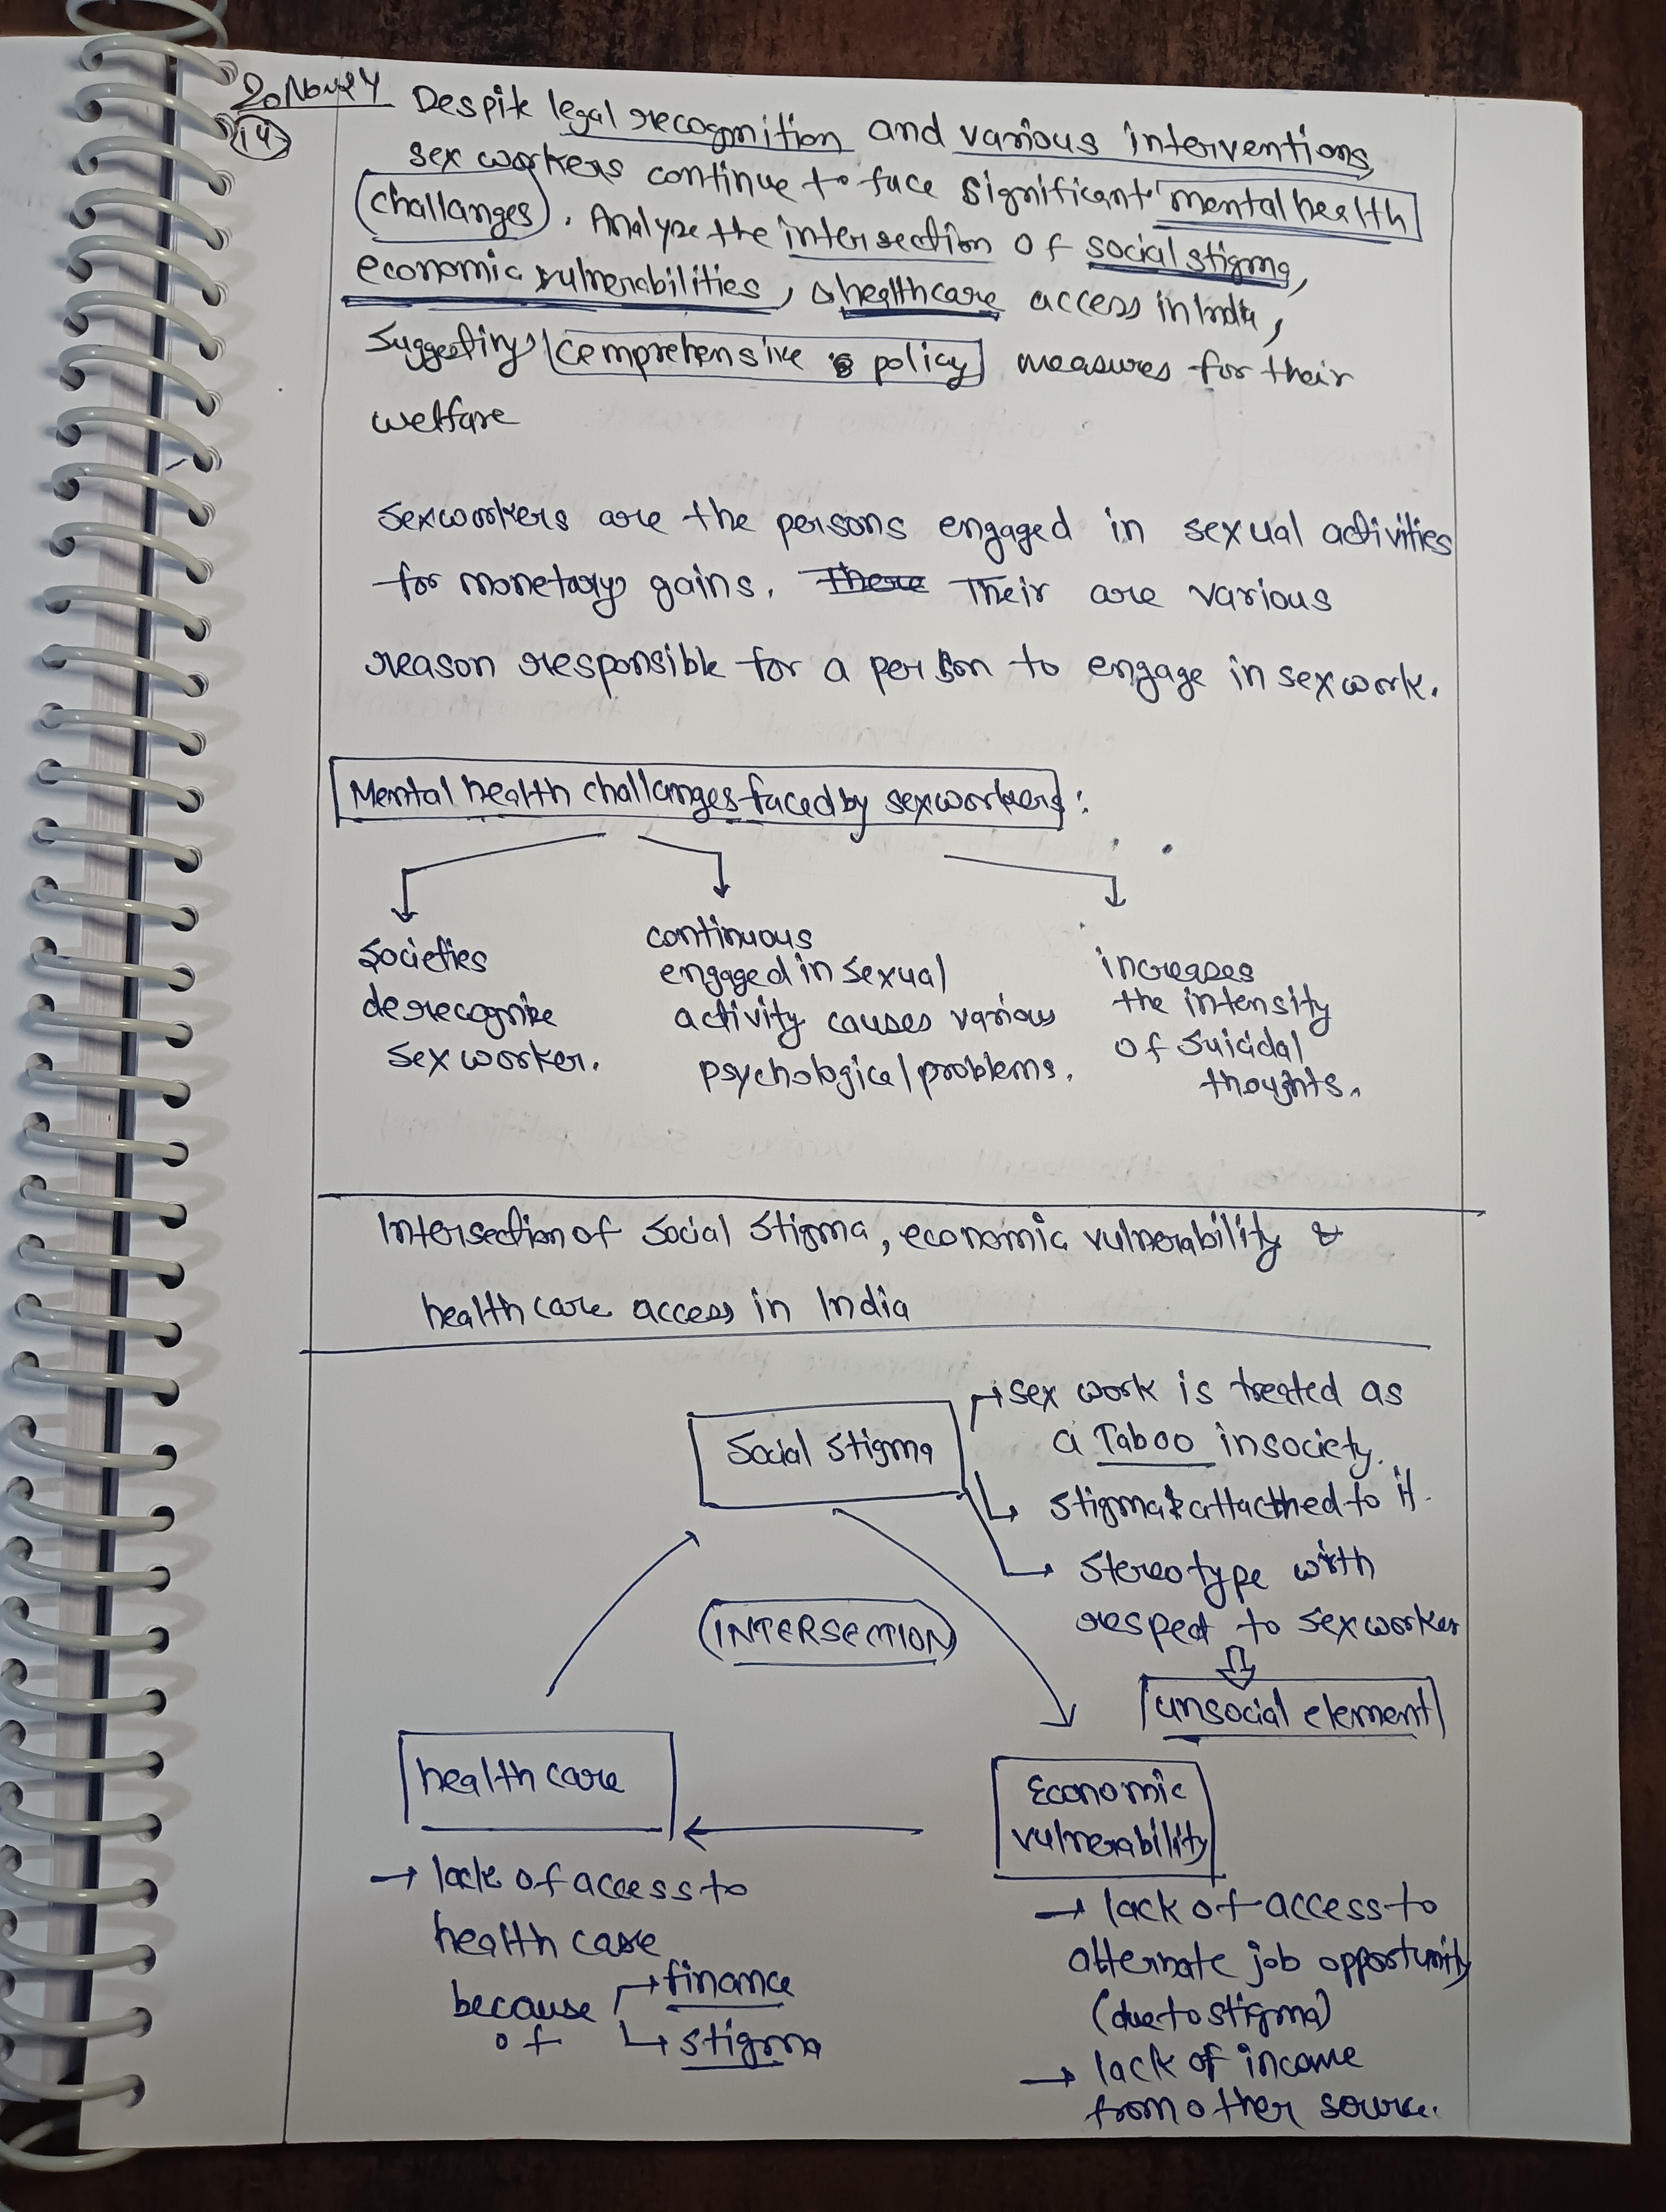 20 Nov 24
14
Despite legal recognition and various interventions,
sex workers continue to face significant mental health
challanges. Analyze the intersection of social stigma,
economic vulnerabilities, & healthcare access in India,
suggesting comprehensive policy measures for their
welfare
sexworkers are the persons engaged in sexual activities
for monetary gains. There Their are various
reason responsible for a person to engage in sexwork.
Mental health challanges faced by sexworkers:
societies
derecognize
sex worker.
continuous
engaged in sexual
activity causes various
psychological problems.
increases
the intensity
of suicidal
thoughts.
Intersection of social stigma, economic vulnerability &
health care access in India
Social stigma
→ sex work is treated as
a Taboo in society.
↳ stigma attatched to it.
↳ stereotype with
respect to sexworker
⇓
unsocial element
INTERSECTION
health care
→ lack of access to
health care
because → finance
of ↳ stigma
Economic
vulnerability
→ lack of access to
alternate job opportunity
(due to stigma)
→ lack of income
from other source.